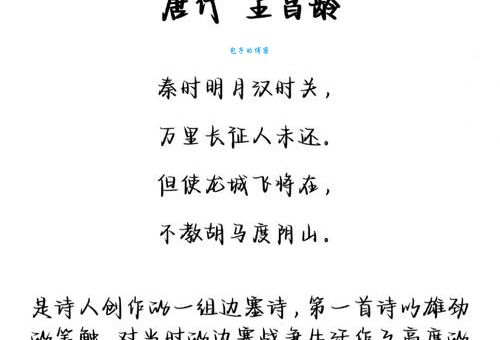 唐代 王昌龄
包子的博客
秦时明月汉时关，
万里长征人未还。
但使龙城飞将在，
不教胡马度阴山。
是诗人创作的一组边塞诗，第一首诗以雄劲
的笔触，对当时的边塞战争生活作了高度的